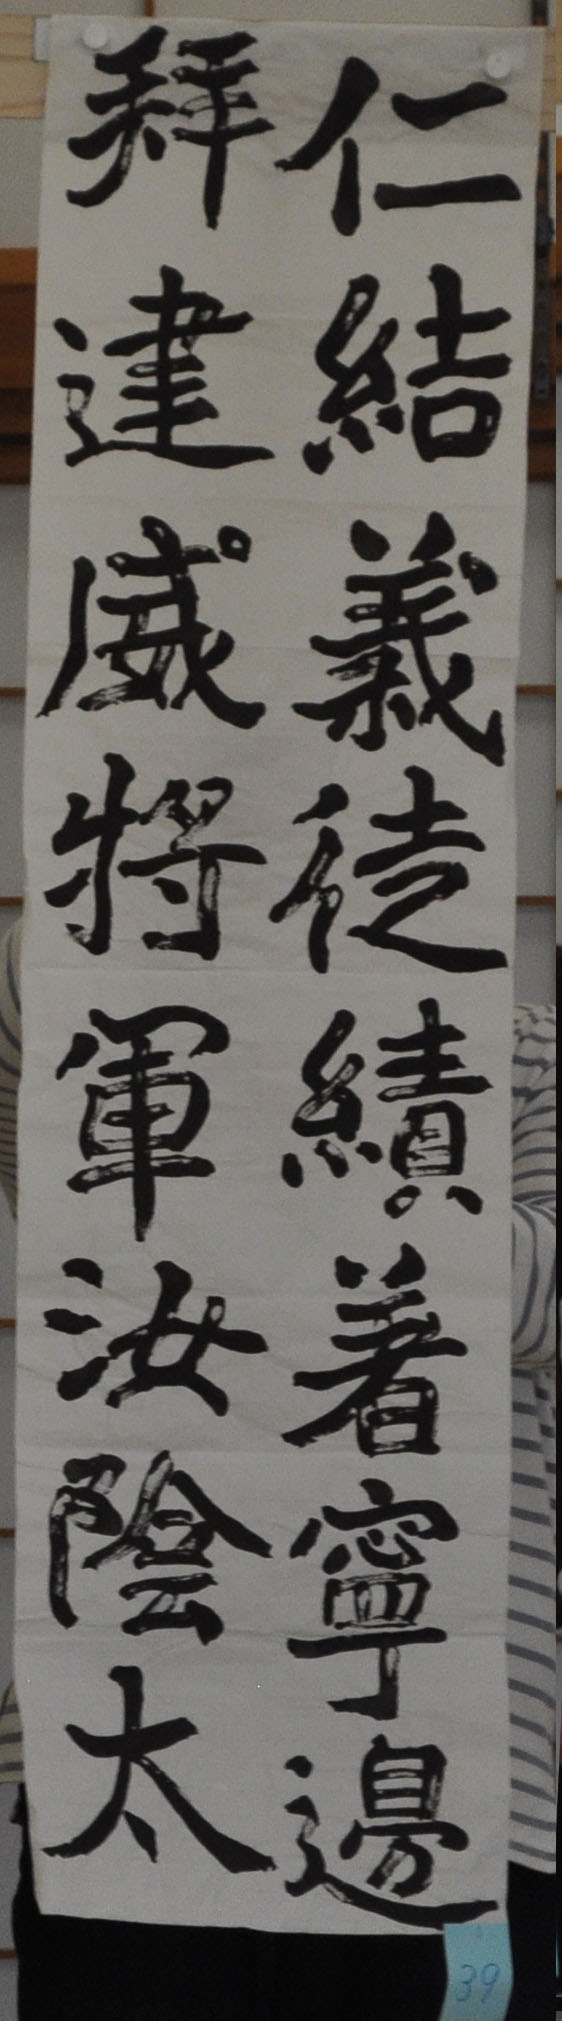 仁結義徒績著寧邊
拜建威將軍汝陰太
39